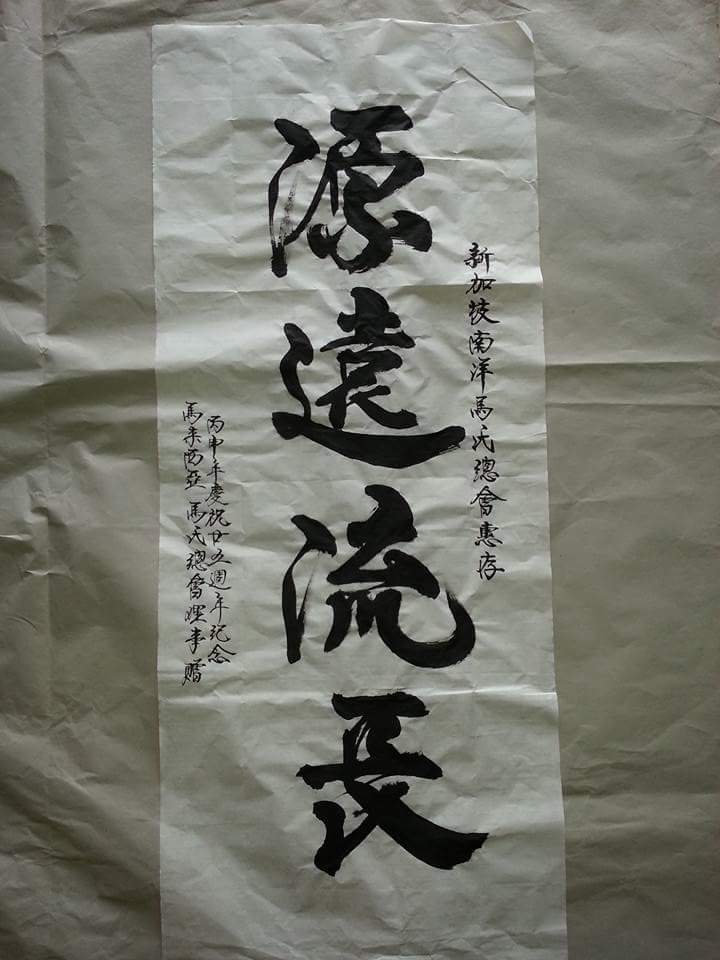 新加坡南洋馬氏總會惠存
源遠流長
丙申年慶祝廿五週年紀念
馬來西亞馬氏總會理事贈